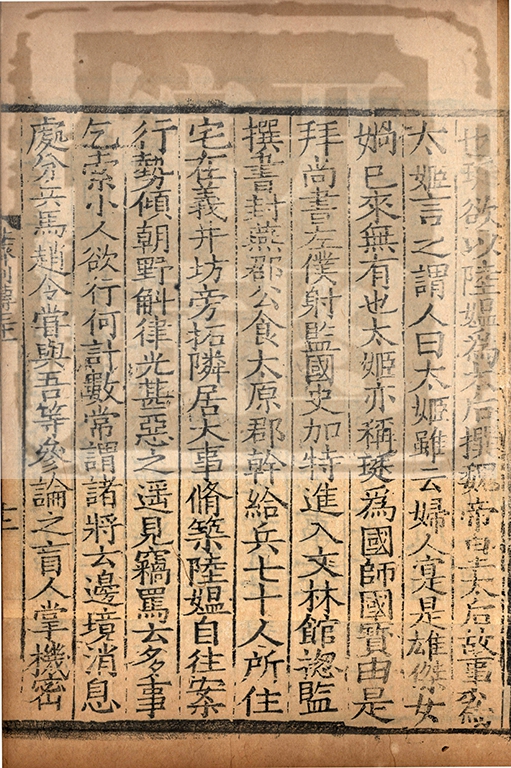 也珽欲以陸媪為太后撰魏帝皇太后故事為
太姬言之謂人曰太姬雖云婦人寔是雄傑女
媧已來無有也太姬亦稱珽為國師國寶由是
拜尚書左僕射監國史加特進入文林館揔監
撰書封燕郡公食太原郡幹給兵七十人所住
宅在義井坊旁拓隣居大事脩築陸媪自往案
行勢傾朝野斛律光甚惡之遥見竊罵云多事
乞索小人欲行何計數常謂諸將云邊境消息
處分兵馬趙令嘗與吾等參論之盲人掌機密